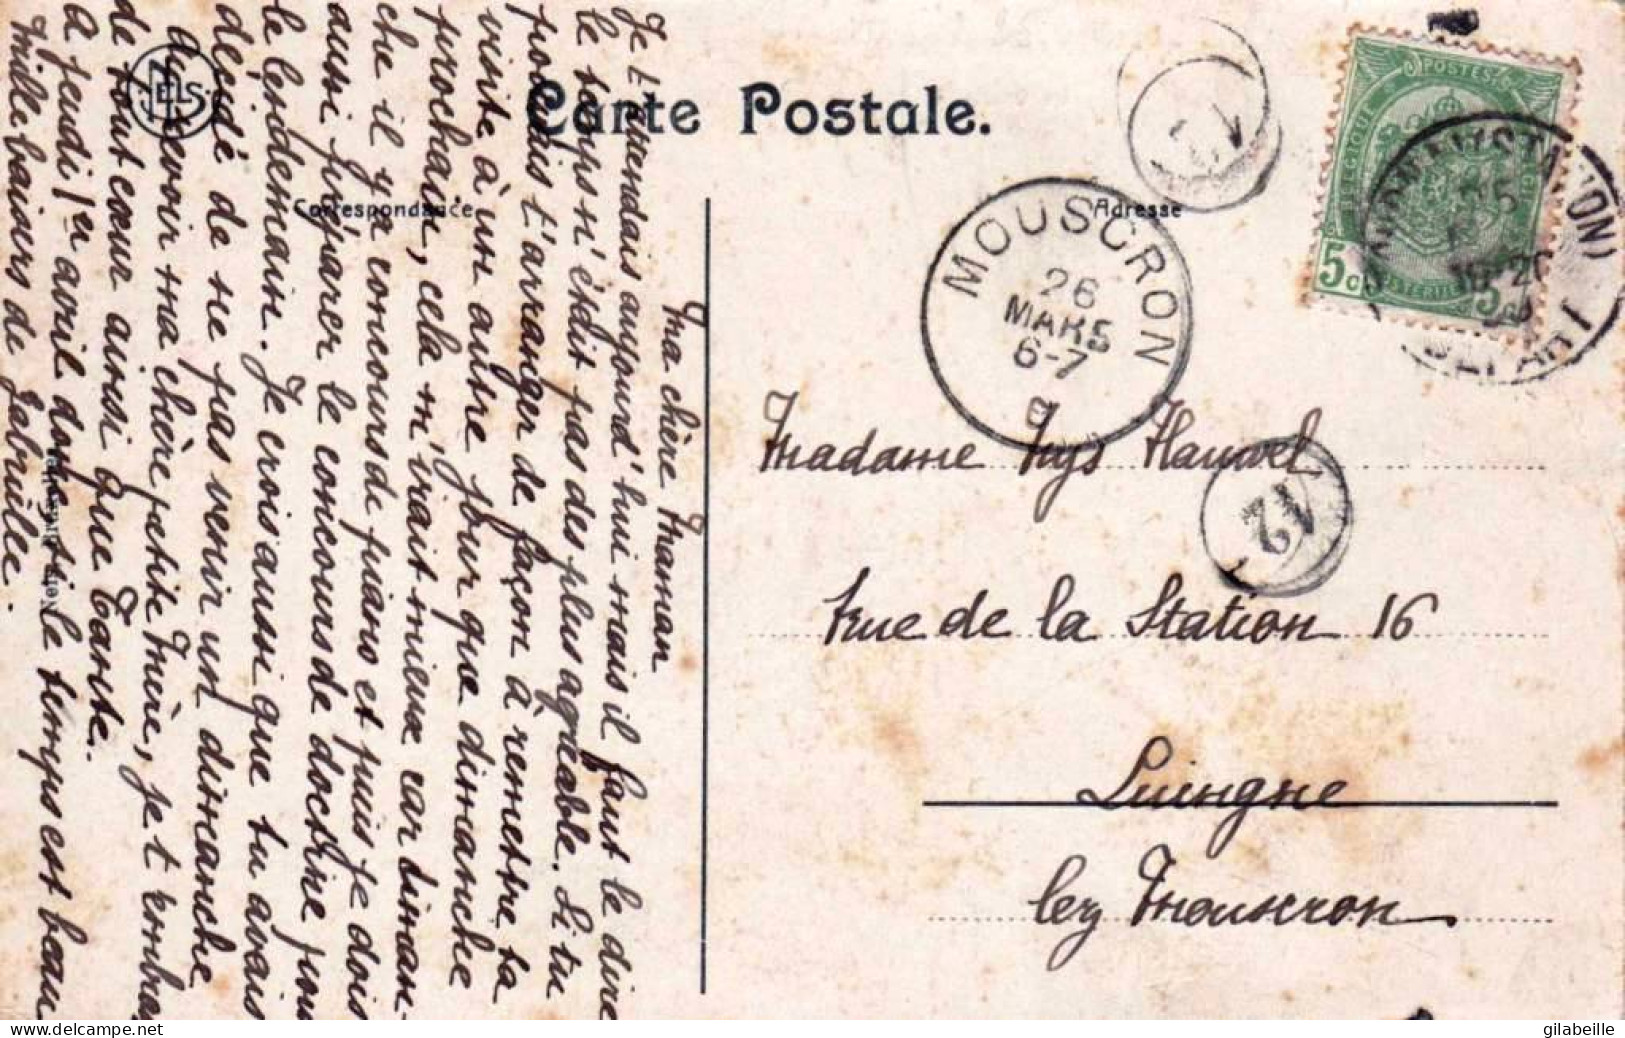 Carte Postale.
Correspondance
Adresse
NELS
MOUSCRON
26
MARS
6-7
POSTES
BELGIQUE
5c
5c
12
Madame Nys Hauwel
rue de la Station 16
Luingne
lez Mouscron
Ma chère Maman
Je t'attendais aujourd'hui mais il faut le dire
le temps n'était pas des plus agréable. Si tu
pouvais t'arranger de façon à remettre ta
visite à un autre jour que dimanche
prochain, cela m'irait mieux car diman-
che il y a concours de piano et puis je dois
aussi préparer le concours de doctrine pour
le lendemain. Je crois aussi que tu avais
décidé de ne pas venir un dimanche
recevoir ma chère petite Mère, je t'embrasse
de tout cœur ainsi que Tante.
A jeudi 1er avril donc si le temps est beau
Mille baisers de Gabrielle.
gilabeille